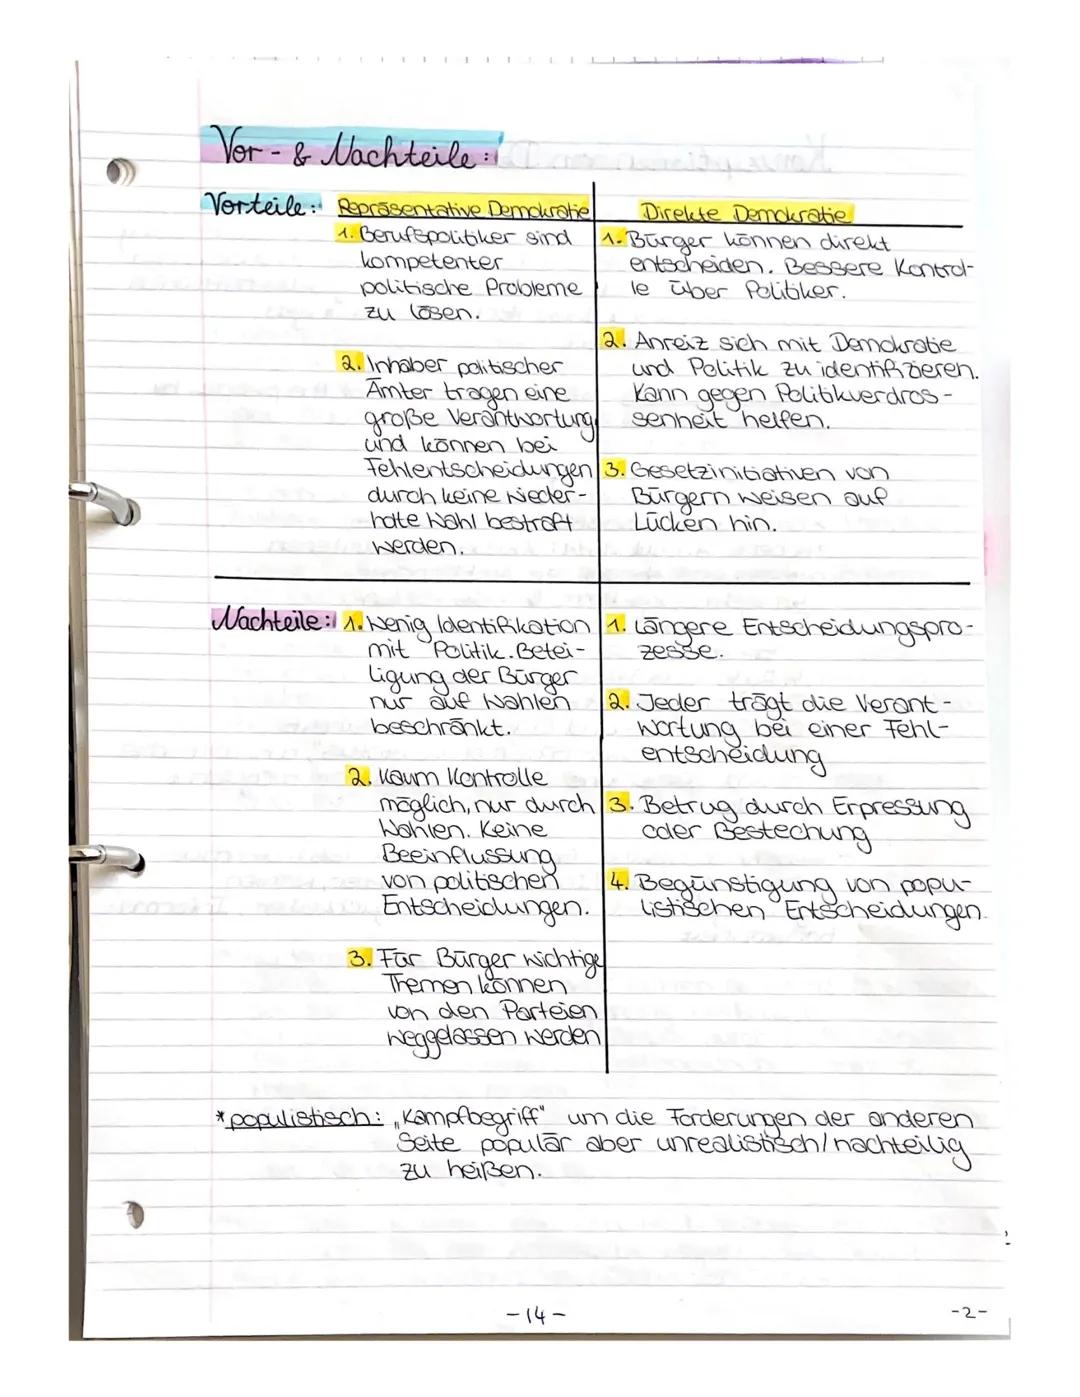 Vor- & Nachteile:
Vorteile:
Repräsentative Demokratie
1. Berufspolitiker sind
kompetenter
politische Probleme
zu lösen.
2. Inhaber politischer
Ämter tragen eine
große Verantwortung
und können bei
Fehlentscheidungen
durch keine Wieder-
hate Wahl bestraft
werden.
Direkte Demokratie
1. Bürger können direkt
entscheiden. Bessere Kontrol-
le über Politiker.
2. Anreiz sich mit Demokratie
und Politik zu identifizieren.
Kann gegen Politikverdros-
senheit helfen.
3. Gesetzinitiativen von
Bürgern weisen auf
Lücken hin.
Nachteile:
1. Wenig Identifikation
mit Politik. Betei-
ligung der Bürger
nur auf Wahlen
beschränkt.
2. Kaum Kontrolle
möglich, nur durch
Wahlen. Keine
Beeinflussung
von politischen
Entscheidungen.
3. Für Bürger wichtige
Themen können
von den Parteien
weggelassen werden
1. Längere Entscheidungspro-
zesse.
2. Jeder trägt die Verant-
wortung bei einer Fehl-
entscheidung
3. Betrug durch Erpressung
oder Bestechung
4. Begünstigung von popu-
listischen Entscheidungen.
*populistisch: „Kampfbegriff" um die Forderungen der anderen
Seite populär aber unrealistisch/nachteilig
zu heißen.
-14-
-2-